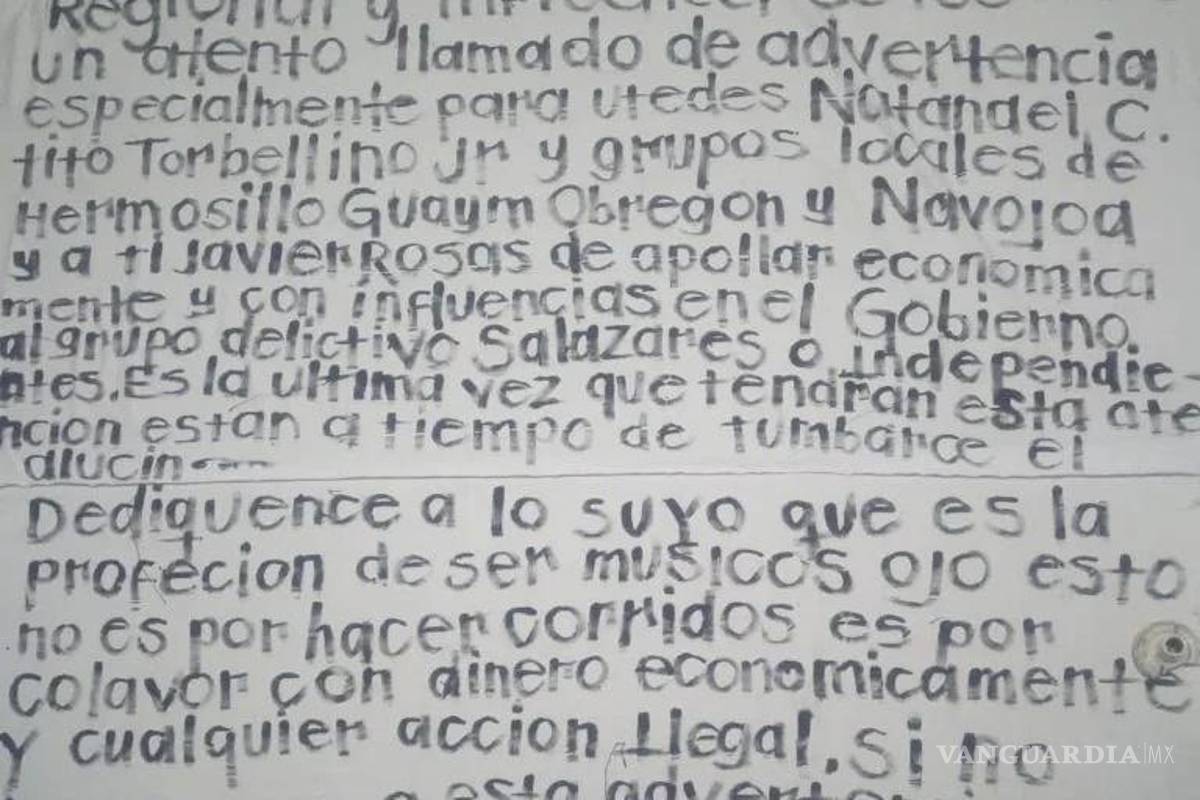 Regional y
un atento llamado de advertencia
especialmente para utedes Natanael C.
tito Torbellino jr y grupos locales de
Hermosillo Guaym Obregon y Navojoa
y a ti Javier Rosas de apollar economica
mente y con influencias en el Gobierno.
al grupo delictivo Salazares o Independie-
ntes. Es la ultima vez que tendran esta ate
ncion estan a tiempo de tumbarce el
alucin
Dediquence a lo suyo que es la
profecion de ser musicos ojo esto
no es por hacer corridos es por
colavor con dinero economicamente
y cualquier accion Ilegal. si no
a esta advert
VANGUARDIA|MX